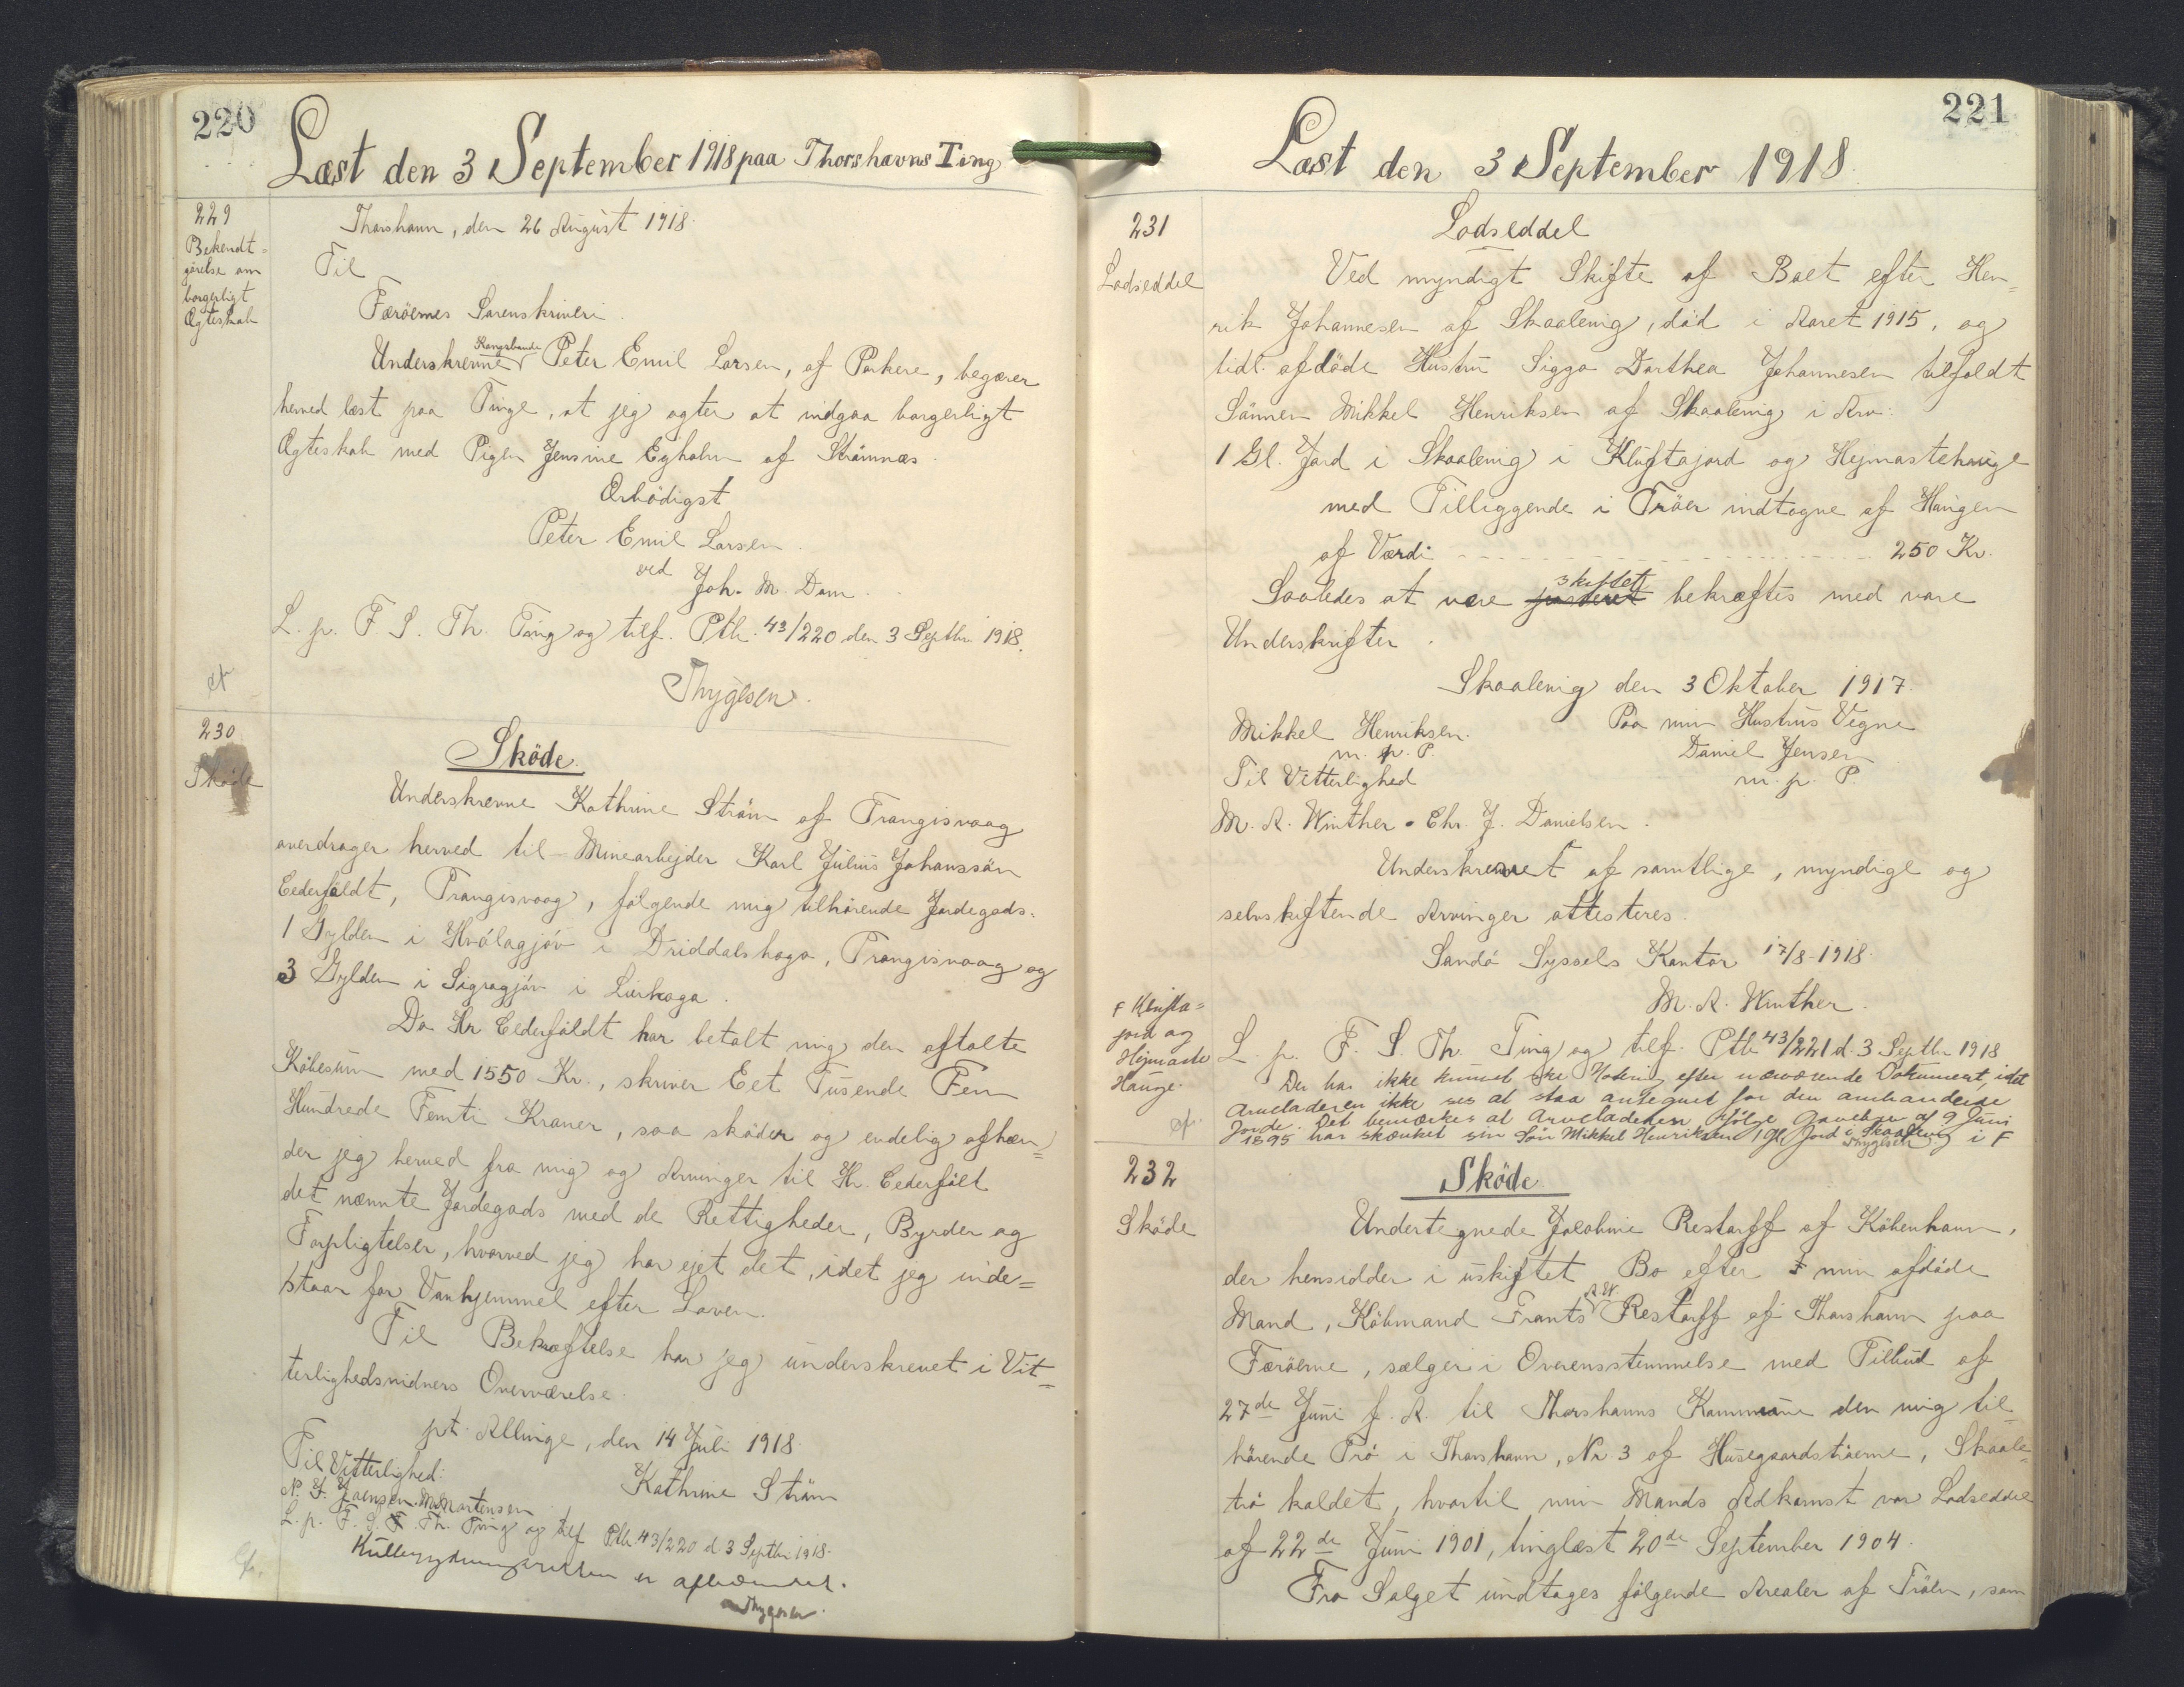 220
Læst den 3 September 1918 paa Thorshavns Ting
229
Bekendt=
görelse om
borgerligt
Ægteskab
Thorshavn, den 26 August 1918.
Til
Færöernes Sorenskriveri.
Underskrevne Kongsbonde Peter Emil Larsen, af Porkere, begærer
herved læst paa Tinge, at jeg agter at indgaa borgerligt
Ægteskab med Pigen Jensine Egholm af Strömnæs.
Ærbödigst
Peter Emil Larsen.
ved Joh. M. Dam.
L. p. F S. Th. Ting og tilf. Ptb. 43/220 den 3 Septbr 1918.
Thygesen.
230
Sköde
Sköde.
Underskrevne Kathrine Ström af Trangisvaag
overdrager herved til Minearbejder Karl Julius Johanssön
Cederföldt, Trangisvaag, fölgende mig tilhörende Jordegods:
1 Gylden i Hválagjóv i Driddalshaga, Trangisvaag og
3 Gylden i Sigragjóv i Lierhaga.
Da Hr Cederföldt har betalt mig den aftalte
Köbesum med 1550 Kr., skriver Eet Tusende Fem
Hundrede Femti Kroner, saa sköder og endelig afhæn=
der jeg herved fra mig og Arvinger til Hr. Cederfölt
det nævnte Jordegods med de Rettigheder, Byrder og
Forpligtelser, hvorved jeg har ejet det, idet jeg inde=
staar for Vanhjemmel efter Loven.
Til Bekræftelse har jeg underskrevet i Vit=
terlighedsvidners Overværelse.
pt. Allinge, den 14 Juli 1918.
Til Vitterlighed:
Kathrine Ström
N. J. Joensen. M. Mortensen
L. p. F. S. Th. Ting og tilf Ptb. 43/220 d. 3 Septbr. 1918.
er
Thygesen.
cf.
221
Læst den 3 September 1918.
231
Lodseddel
Lodseddel
Ved myndigt Skifte af Boet efter Hen=
rik Johannesen af Skaalevig, död i Aaret 1915, og
tidl. afdöde Hustru Sigga Dorthea Johannesen tilfaldt
Sönnen Mikkel Henriksen af Skaalevig i Arv:
1 Gl. Jord i Skaalevig i Kluftajord og Hejmastehauge
med Tilliggende i Tröer indtagne af Haugen
af Værdi - - - - - - 250 Kr.
Saaledes at være skiftet bekræftes med vore
Underskrifter.
Skaalevig den 3 Oktober 1917.
Mikkel Henriksen.
m. p. P.
Paa min Hustrus Vegne
Daniel Jensen
m. p. P.
Til Vitterlighed
M. A. Winther. Chr. J. Danielsen.
Underskrevet af samtlige, myndige og
selvskiftende Arvinger attesteres.
Sandö Syssels Kontor 17/8-1918.
M. A. Winther.
F Klufta=
jord og
Hejmaste
Hauge.
L. p. F. S. Th. Ting og tilf. Ptb 43/221 d. 3 Septbr 1918
Der har ikke kunnet ske Notering efter nærværende Dokument, idet
Arveladeren ikke ses at staa antegnet for den omhandlede
Jorde. Det bemærkes at Arveladeren ifölge Gavebrev af 9 Juni
1895 har skænket sin Sön Mikkel Henriksen 1 Gl Jord i Skaalevig i F
Thygesen
cf.
232
Sköde
Sköde
Undertegnede Jacobine Restorff af Köbenhavn,
der hensidder i uskiftet Bo efter min afdöde
Mand, Köbmand Frants A.W. Restorff af Thorshavn paa
Færöerne, sælger i Overensstemmelse med Tilbud af
27de Juni f. A. til Thorshavns Kommune den mig til=
hörende Trö i Thorshavn, Nr. 3 af Husegaardströerne, Skaale=
trö kaldet, hvortil min Mands Adkomst var Lodseddel
af 22de Juni 1901, tinglæst 20de September 1904.
Fra Salget undtages fölgende Arealer af Tröen, som